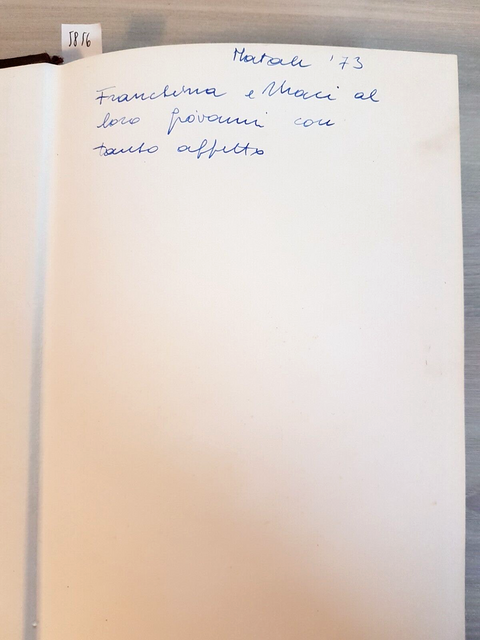 5816
Natale '73
Franchina e Maci al
loro Giovanni con
tanto affetto